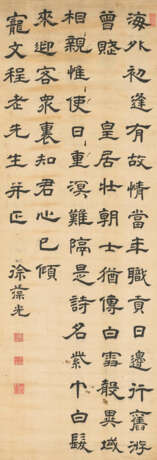 海外初逢有故情當年職貢日邊行舊游
曾賦皇居壯朝士猶傳白雪聲異域
相親惟使日重溟難隔是詩名紫巾白髮
來迎客眾裏知君心已傾
寵文程老先生并正
徐葆光